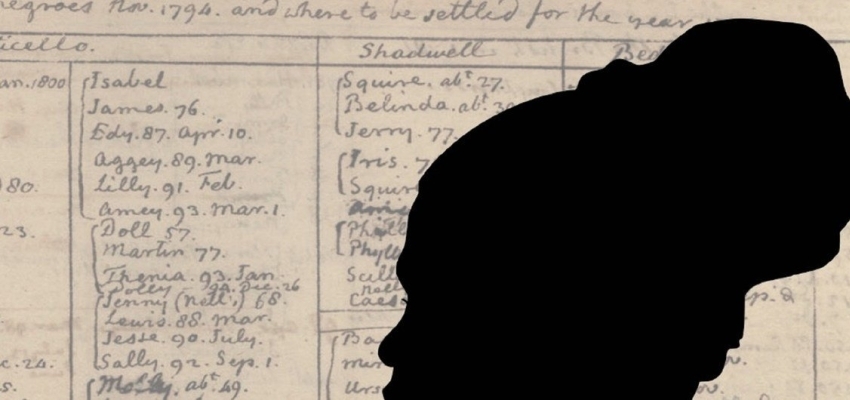 negroes Nov. 1794. and where to be settled for the year
icello.
Shadwell
Bed
an. 1800
80.
23.
c. 24.
s.
Isabel
James. 76.
Edy. 87. Apr. 10.
Aggey. 89. Mar.
Lilly. 91. Feb.
Amey. 93. Mar. 1.
Doll 57.
Martin 77.
Thenia. 93. Jan
Dolley - 94. Dec. 26
Jenny (Nell's) 68.
Lewis. 88. Mar.
Jesse. 90. July.
Sally. 92. Sep. 1.
abt. 49.
Squire. abt. 27.
Belinda. abt. 3
Jerry. 77.
Iris. 7
Squire
Phyll
Scill
Nell
Caes
Ba
Urs